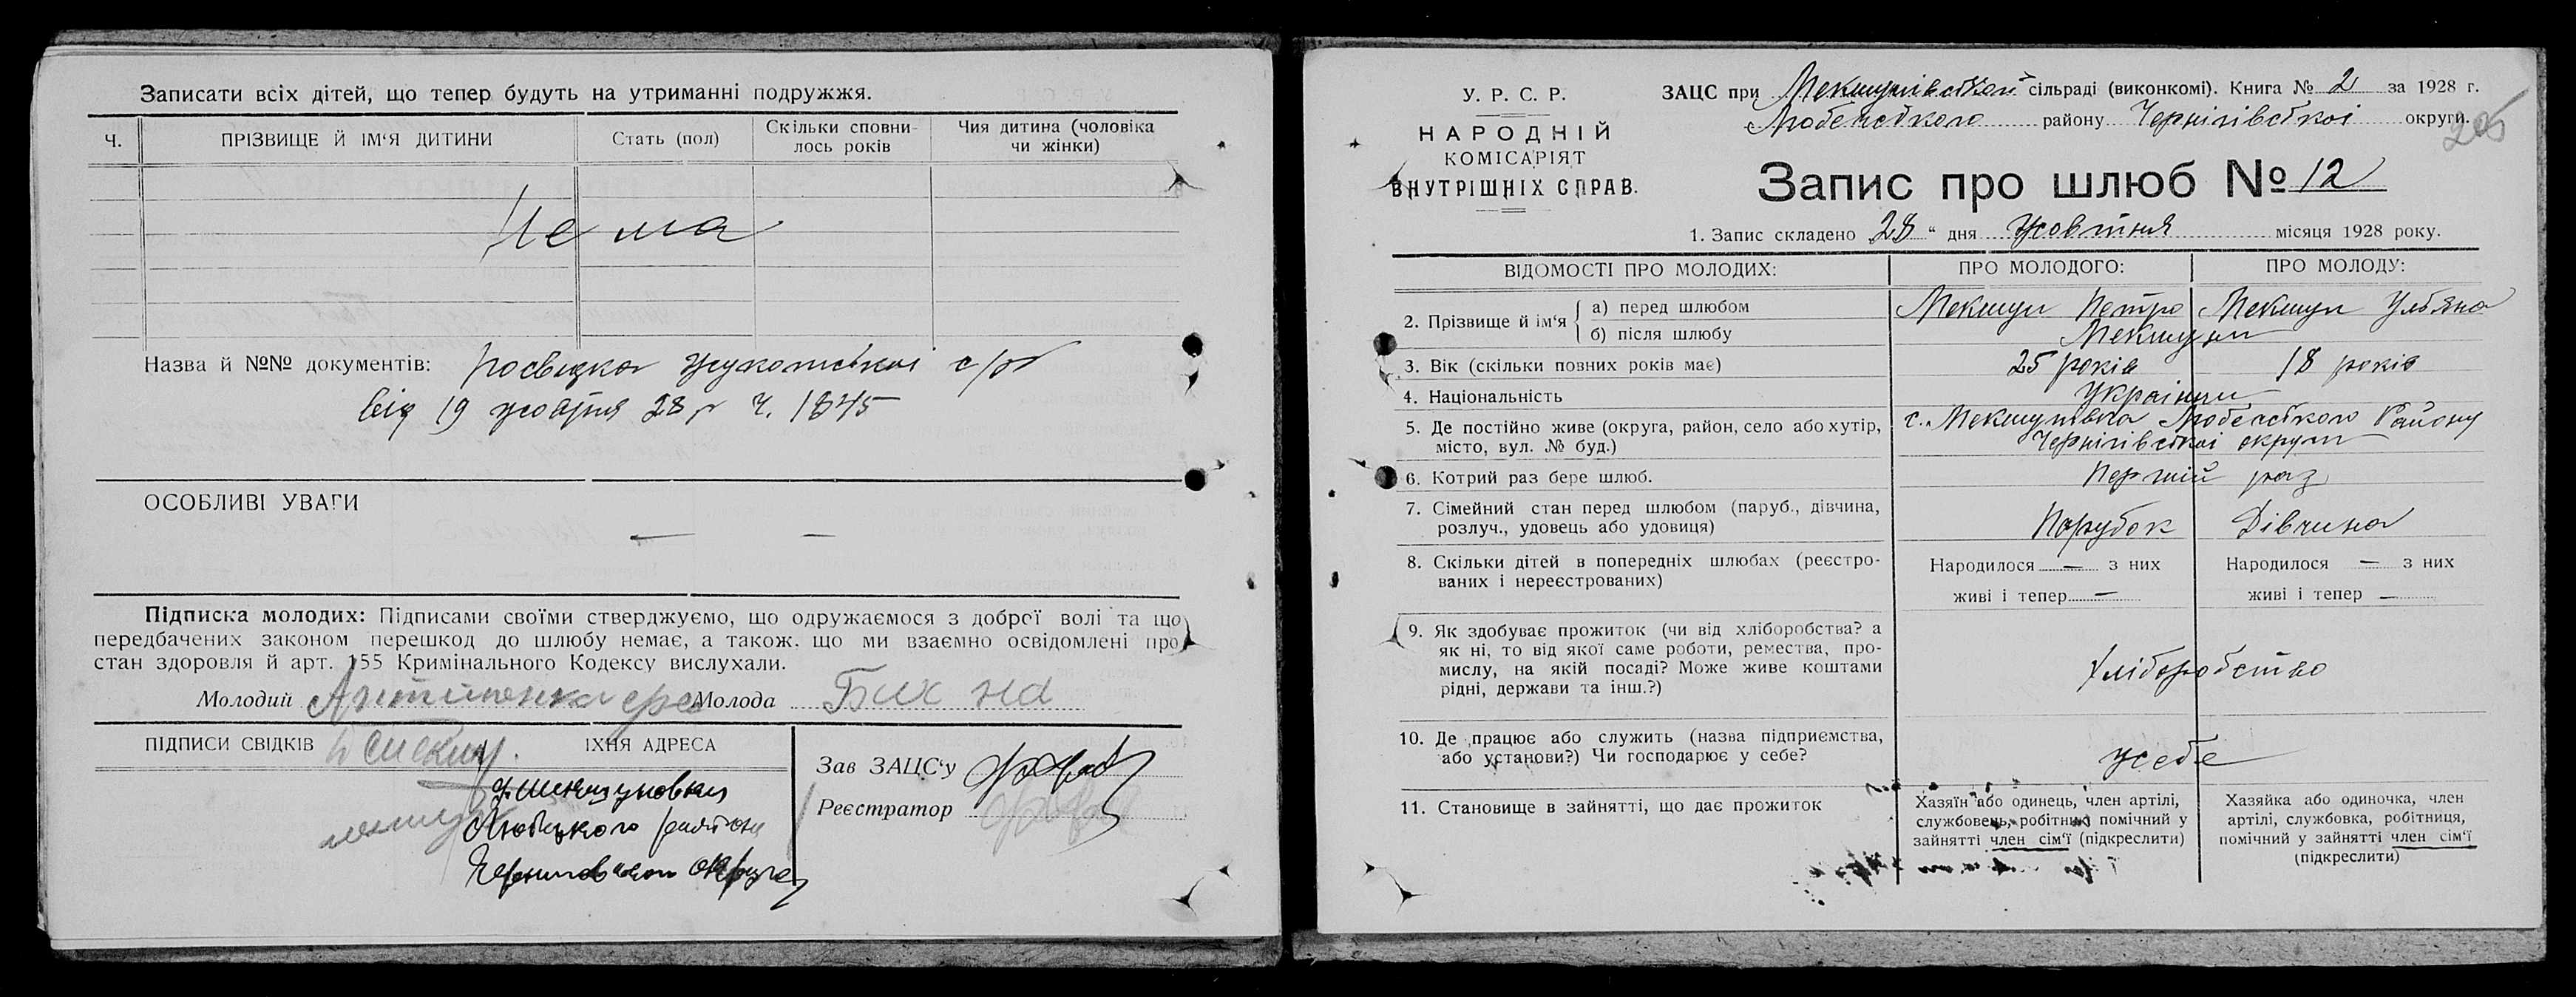 Записати всіх дітей, що тепер будуть на утриманні подружжя.
Ч. ПРІЗВИЩЕ Й ІМ'Я ДИТИНИ Стать (пол) Скільки сповни-лось років Чия дитина (чоловіка чи жінки)
Нема
Назва й №№ документів: Посвідка Жукотської с/р
від 19 жовтня 28 р Ч. 1845
ОСОБЛИВІ УВАГИ
— —
Підписка молодих: Підписами своїми стверджуємо, що одружаємося з доброї волі та що
передбачених законом перешкод до шлюбу немає, а також, що ми взаємно освідомлені про
стан здоровля й арт. 155 Кримінального Кодексу вислухали.
Молодий Молода
ПІДПИСИ СВІДКІВ ЇХНЯ АДРЕСА
Зав ЗАЦС'у
Реєстратор
У. Р. С. Р.
НАРОДНІЙ
КОМІСАРІЯТ
ВНУТРІШНІХ СПРАВ.
ЗАЦС при Мекшунівській сільраді (виконкомі). Книга № 2 за 1928 г.
Любецького району Чернігівської округи.
Запис про шлюб № 12
1. Запис складено 28 " дня Жовтня місяця 1928 року.
ВІДОМОСТІ ПРО МОЛОДИХ: ПРО МОЛОДОГО: ПРО МОЛОДУ:
2. Прізвище й ім'я { а) перед шлюбом Мекшун Петро Мекшун Уляна
б) після шлюбу Мекшуни
3. Вік (скільки повних років має) 25 років 18 років
4. Національність Українці
5. Де постійно живе (округа, район, село або хутір, с. Мекшунівка Любецького Району
місто, вул. № буд.) Чернігівської округи
6. Котрий раз бере шлюб. Перший раз
7. Сімейний стан перед шлюбом (паруб., дівчина, Парубок Дівчина
розлуч., удовець або удовиця)
8. Скільки дітей в попередніх шлюбах (реєстро- Народилося — з них Народилося — з них
ваних і нереєстрованих) живі і тепер — живі і тепер —
9. Як здобуває прожиток (чи від хліборобства? а
як ні, то від якої саме роботи, ремества, про-
мислу, на якій посаді? Може живе коштами Хліборобство
рідні, держави та інш.?)
10. Де працює або служить (назва підприємства,
або установи?) Чи господарює у себе? у себе
11. Становище в зайнятті, що дає прожиток Хазяїн або одинець, член артілі, Хазяйка або одиночка, член
службовець, робітник помічний у артілі, службовка, робітниця,
зайнятті член сім'ї (підкреслити) помічний у зайнятті член сім'ї
(підкреслити)